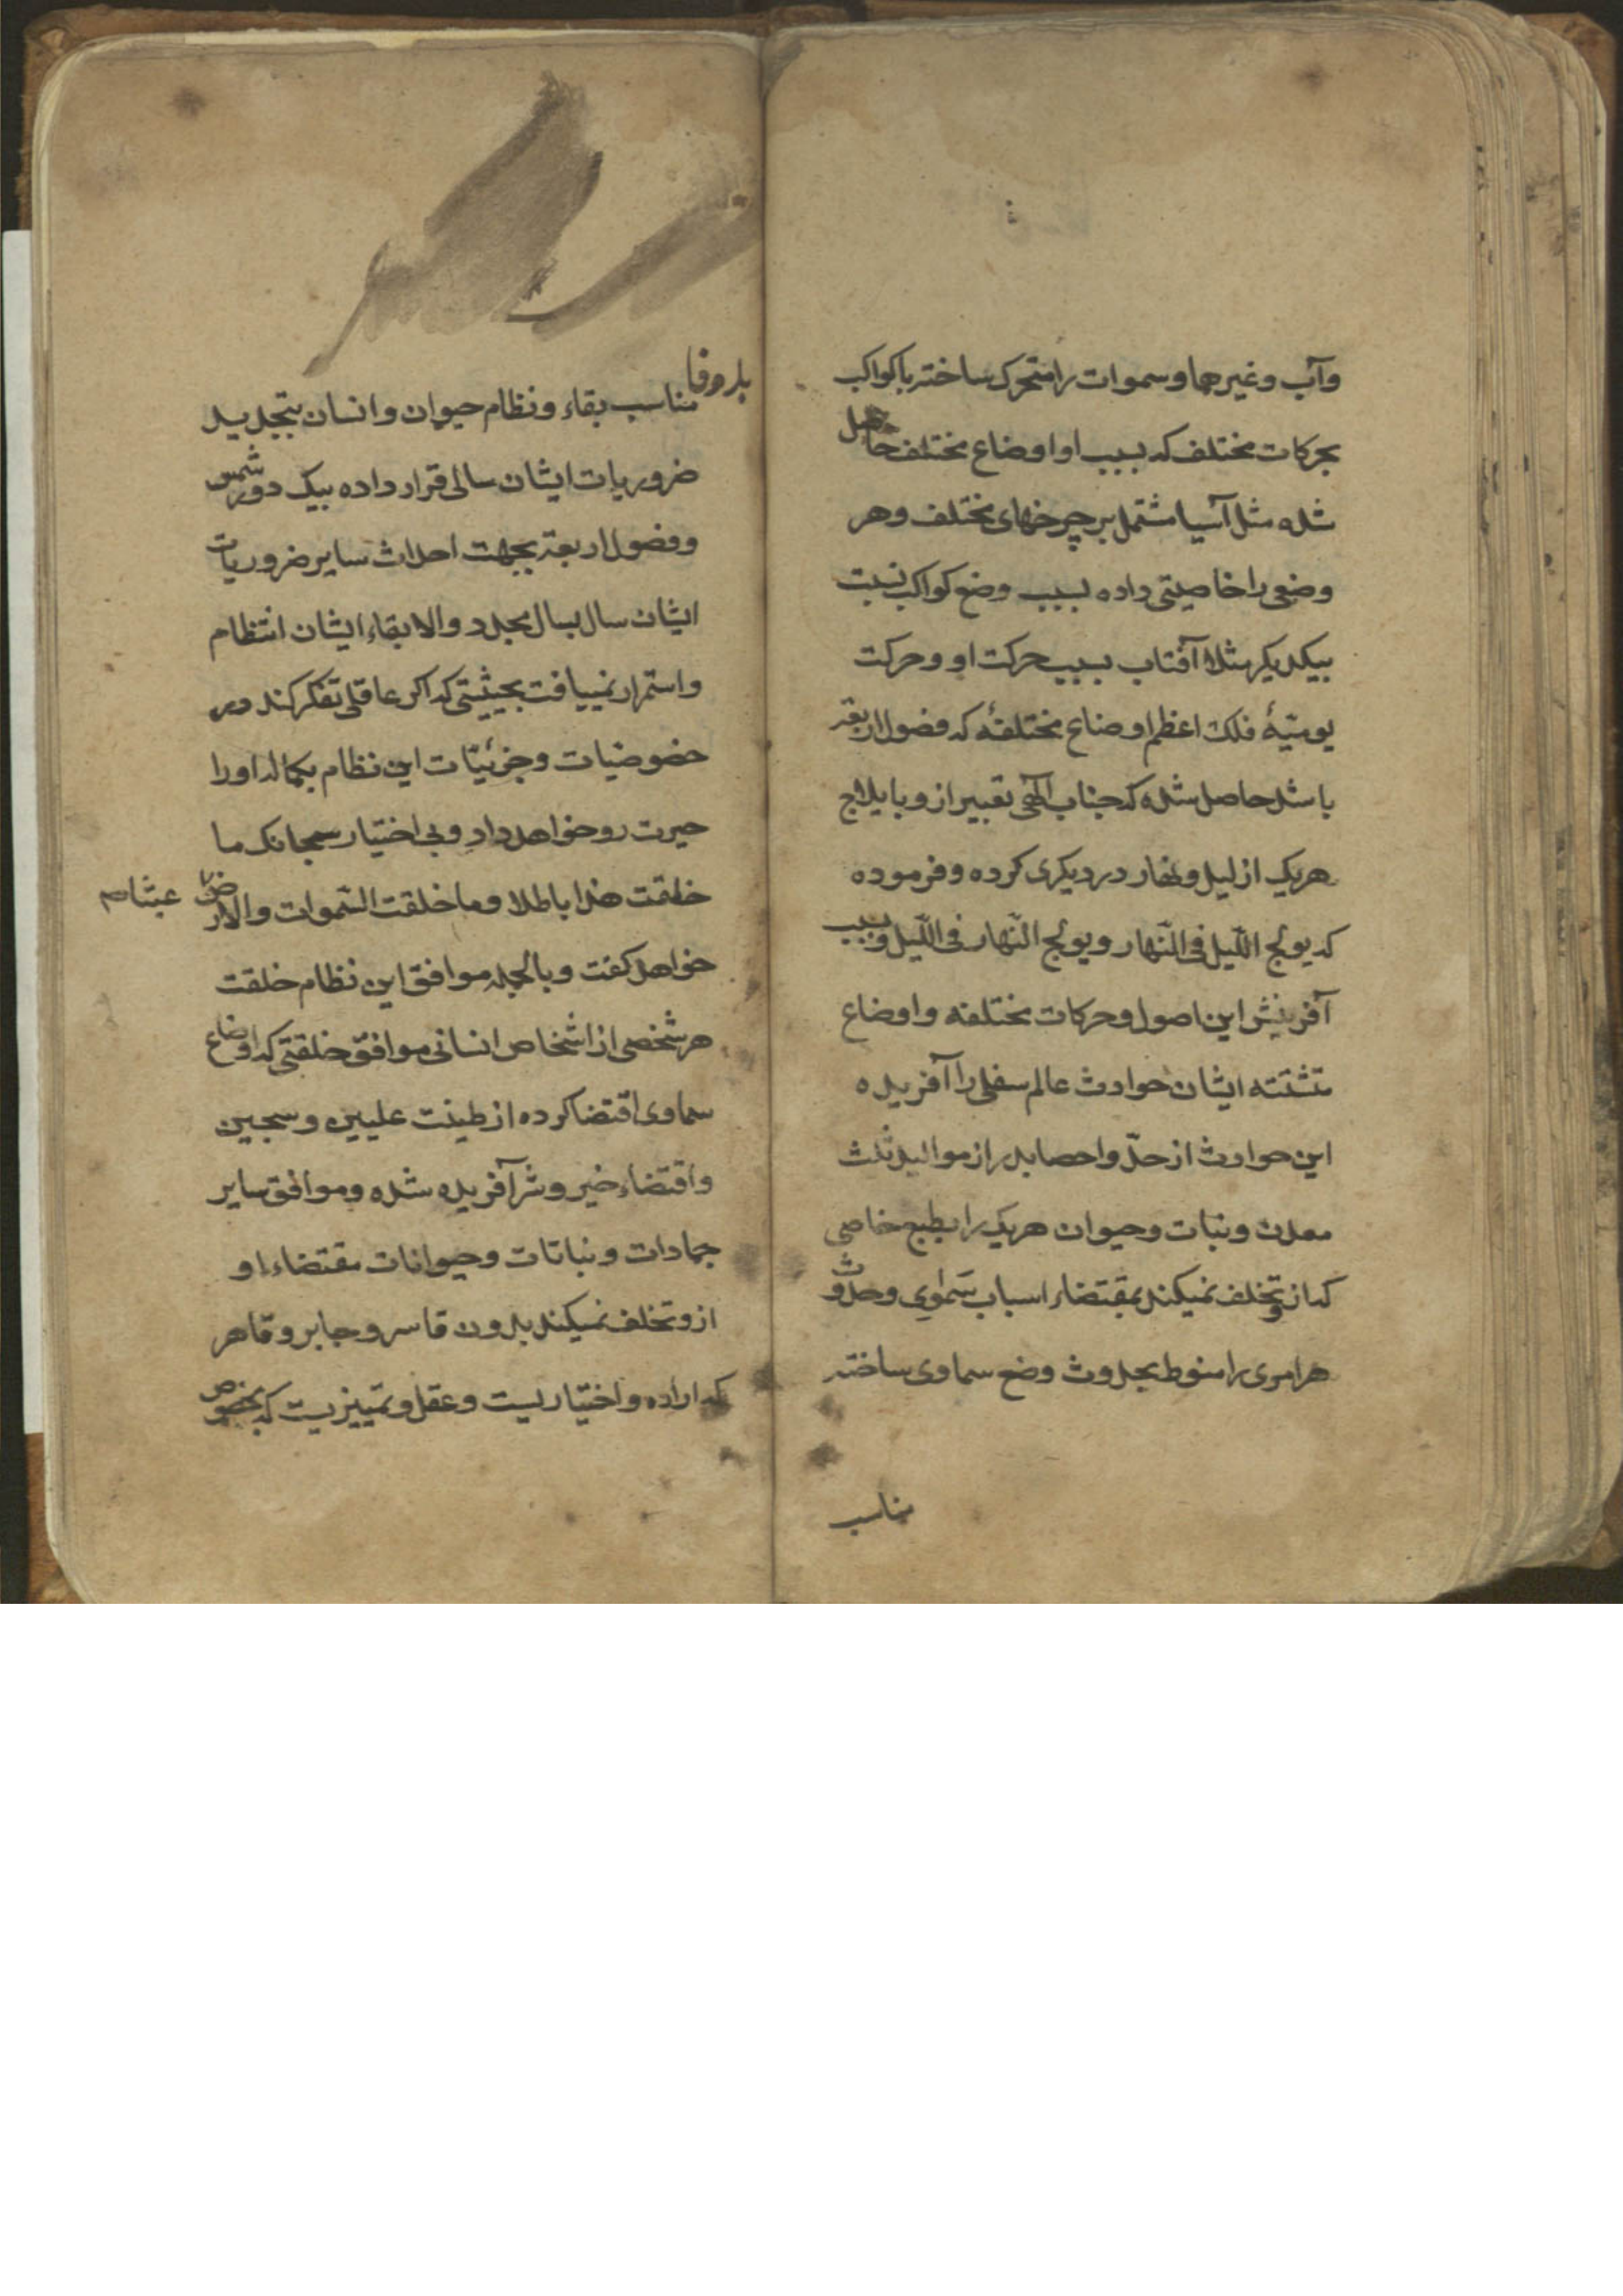 وآب وغیرهما وسموات را متحرک ساخته با کواکب
بحرکات مختلف که بسبب او اوضاع مختلف حاصل
شده مثل آسیا مشتمل بر چرخهای مختلف وهر
وضعی را خاصیتی داده بسبب وضع کواکب نسبت
بیکدیکر مثلا آفتاب بسبب حرکت او وحرکت
یومیّهٔ فلک اعظم اوضاع مختلفهٔ که فصول اربعه
باشد حاصل شده که جناب الهی تعبیر ازو بایلاج
هریک از لیل ونهار در دیکری کرده وفرموده
که یولج اللّیل فی النّهار ویولج النّهار فی اللّیل وبسبب
آفرینش این اصول وحرکات مختلفه واوضاع
متشتته ایشان حوادث عالم سفلی را آفریده
این حوادث از حدّ واحصا بدر از موالید ثلث
معدن ونبات وحیوان هریک را بطبع خاصی
که ازو تخلف نمیکند بمقتضاء اسباب سَمٰوی وحدوث
هر امری را منوط بحدوث وضع سماوی ساخته
مناسب
مناسب بقاء ونظام حیوان وانسان بتجدید
ضروریات ایشان سالی قرار داده بیک دور شمس
وفصول اربعه بجهت احداث سایر ضروریات
ایشان سال بسال مجدد والا بقاء ایشان انتظام
واستمرار نمییافت بحیثیتی که اکر عاقلی تفکر کند در
خصوصیات وجزئیّات این نظام بکماله اورا
حیرت رو خواهد داد وبی اختیار سبحانک ما
خلقت هذا باطلا وما خلقت السّموات والارض عبثا صح
خواهد کفت وبالجمله موافق این نظام خلقت
هر شخصی از اشخاص انسانی موافق خلقتی که اوضاع
سماوی اقتضا کرده از طینت علیین وسجین
واقتضاء خیر وشر آفریده شده وموافق سایر
جمادات ونباتات وحیوانات مقتضاء او
ازو تخلف نمیکند بدون قاسر وجابر وقاهر
که اراده واختیاریست وعقل وتمییزیست که بخصوص